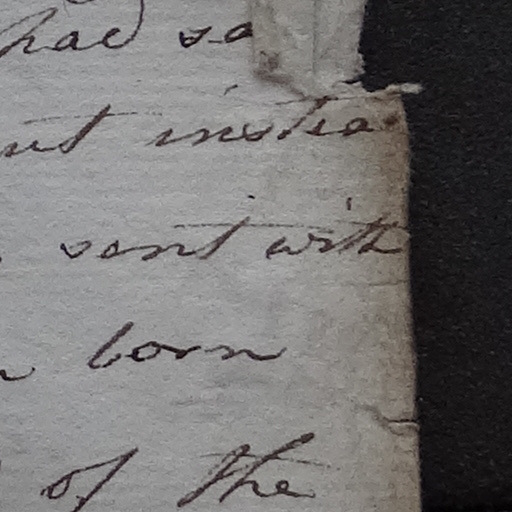 had so
ut instea
sent with
born
of the